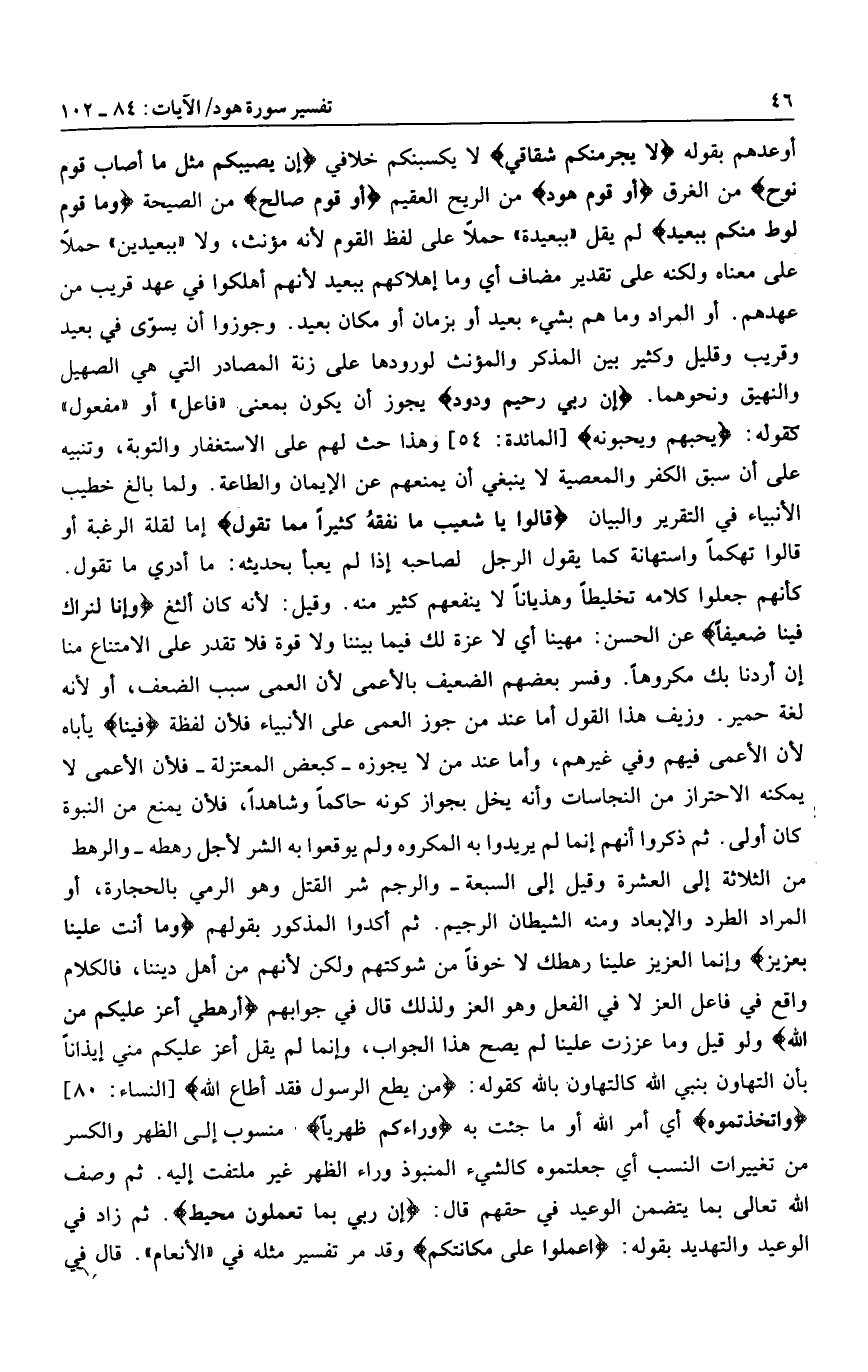 ٤٦
تفسير سورة هود/ الآيات: ٨٤ ـ ١٠٢
أوعدهم بقوله ﴿لا يجرمنكم شقاقي﴾ لا يكسبنكم خلافي ﴿إن يصيبكم مثل ما أصاب قوم
نوح﴾ من الغرق ﴿أو قوم هود﴾ من الريح العقيم ﴿أو قوم صالح﴾ من الصيحة ﴿وما قوم
لوط منكم ببعيد﴾ لم يقل «ببعيدة» حملاً على لفظ القوم لأنه مؤنث، ولا «ببعيدين» حملاً
على معناه ولكنه على تقدير مضاف أي وما إهلاكهم ببعيد لأنهم أهلكوا في عهد قريب من
عهدهم. أو المراد وما هم بشيء بعيد أو بزمان أو مكان بعيد. وجوزوا أن يسوّى في بعيد
وقريب وقليل وكثير بين المذكر والمؤنث لورودها على زنة المصادر التي هي الصهيل
والنهيق ونحوهما. ﴿إن ربي رحيم ودود﴾ يجوز أن يكون بمعنى «فاعل» أو «مفعول»
كقوله: ﴿يحبهم ويحبونه﴾ [المائدة: ٥٤] وهذا حث لهم على الاستغفار والتوبة، وتنبيه
على أن سبق الكفر والمعصية لا ينبغي أن يمنعهم عن الإيمان والطاعة. ولما بالغ خطيب
الأنبياء في التقرير والبيان ﴿قالوا يا شعيب ما نفقهُ كثيراً مما تقول﴾ إما لقلة الرغبة أو
قالوا تهكماً واستهانة كما يقول الرجل لصاحبه إذا لم يعبأ بحديثه: ما أدري ما تقول.
كأنهم جعلوا كلامه تخليطاً وهذياناً لا ينفعهم كثير منه. وقيل: لأنه كان ألثغ ﴿وإنا لنراك
فينا ضعيفاً﴾ عن الحسن: مهينا أي لا عزة لك فيما بيننا ولا قوة فلا تقدر على الامتناع منا
إن أردنا بك مكروهاً. وفسر بعضهم الضعيف بالأعمى لأن العمى سبب الضعف، أو لأنه
لغة حمير. وزيف هذا القول أما عند من جوز العمى على الأنبياء فلأن لفظة ﴿فينا﴾ يأباه
لأن الأعمى فيهم وفي غيرهم، وأما عند من لا يجوزه ـ كبعض المعتزلة ـ فلأن الأعمى لا
يمكنه الاحتراز من النجاسات وأنه يخل بجواز كونه حاكماً وشاهداً، فلأن يمنع من النبوة
كان أولى. ثم ذكروا أنهم إنما لم يريدوا به المكروه ولم يوقعوا به الشر لأجل رهطه ـ والرهط
من الثلاثة إلى العشرة وقيل إلى السبعة ـ والرجم شر القتل وهو الرمي بالحجارة، أو
المراد الطرد والإبعاد ومنه الشيطان الرجيم. ثم أكدوا المذكور بقولهم ﴿وما أنت علينا
بعزيز﴾ وإنما العزيز علينا رهطك لا خوفاً من شوكتهم ولكن لأنهم من أهل ديننا، فالكلام
واقع في فاعل العز لا في الفعل وهو العز ولذلك قال في جوابهم ﴿أرهطي أعز عليكم من
الله﴾ ولو قيل وما عززت علينا لم يصح هذا الجواب، وإنما لم يقل أعز عليكم مني إيذاناً
بأن التهاون بنبي الله كالتهاون بالله كقوله: ﴿من يطع الرسول فقد أطاع الله﴾ [النساء: ٨٠]
﴿واتخذتموه﴾ أي أمر الله أو ما جئت به ﴿وراءكم ظهرياً﴾ منسوب إلى الظهر والكسر
من تغييرات النسب أي جعلتموه كالشيء المنبوذ وراء الظهر غير ملتفت إليه. ثم وصف
الله تعالى بما يتضمن الوعيد في حقهم قال: ﴿إن ربي بما تعملون محيط﴾. ثم زاد في
الوعيد والتهديد بقوله: ﴿اعملوا على مكانتكم﴾ وقد مر تفسير مثله في «الأنعام». قال في